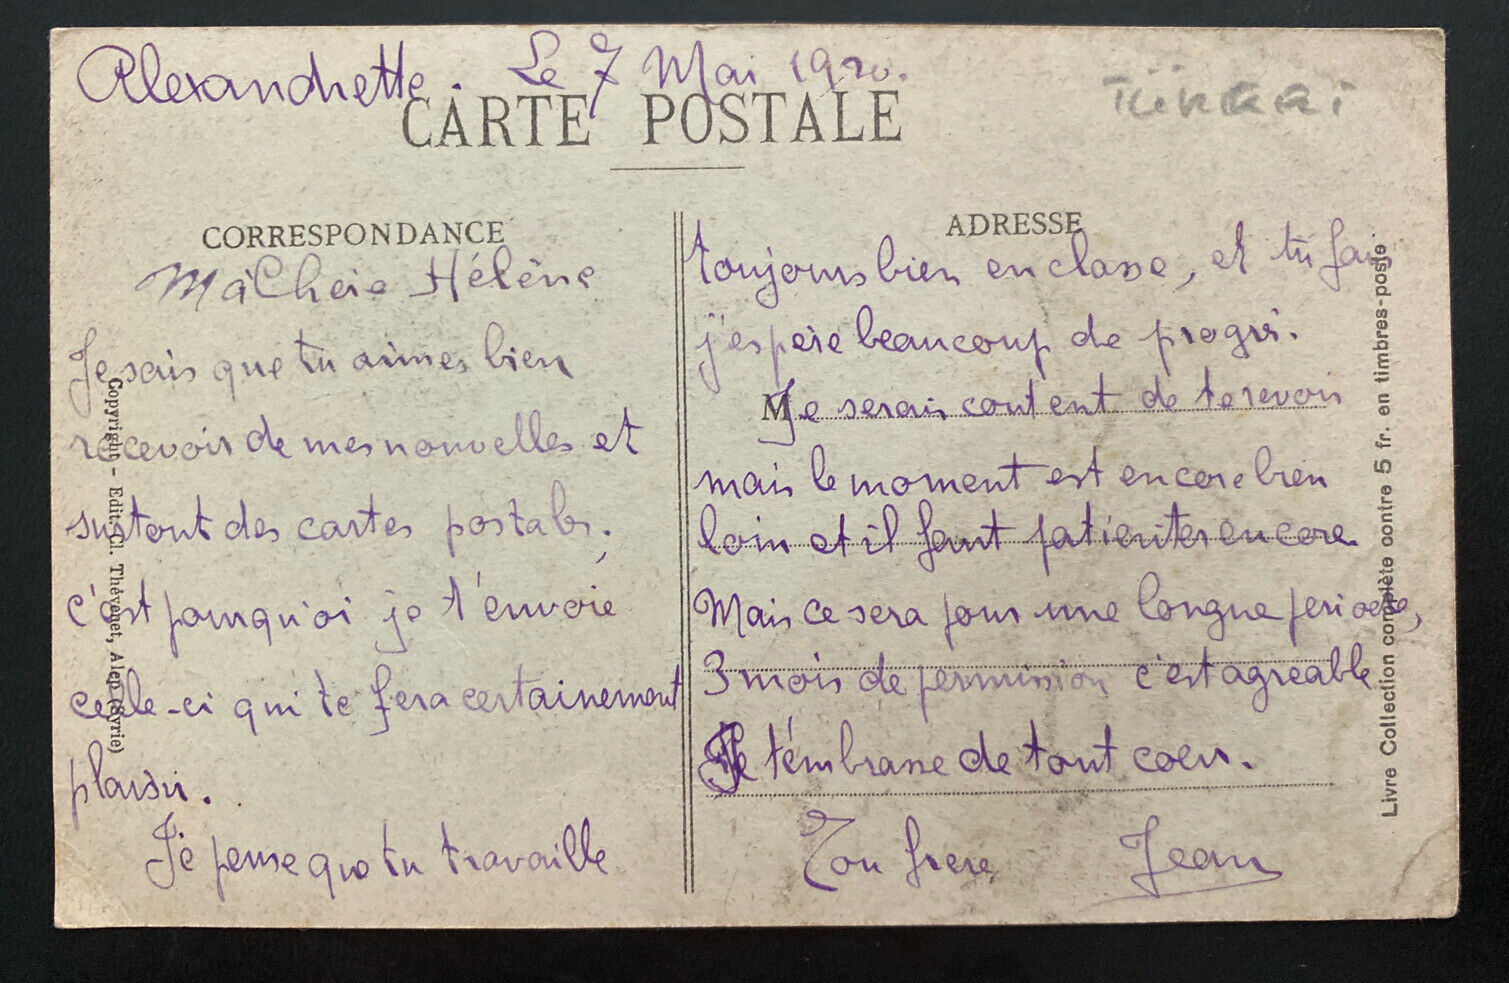 Alexandrette. Le 7 Mai 1920.
CARTE POSTALE
CORRESPONDANCE
Ma Chère Hélène
Je sais que tu aimes bien
recevoir de mes nouvelles et
surtout des cartes postales;
c'est pourquoi je t'envoie
celle-ci qui te fera certainement
plaisir.
Je pense que tu travaille
ADRESSE
toujours bien en classe, et tu fais
j'espère beaucoup de progrès.
M
Je serais content de te revoir
mais le moment est encore bien
loin et il faut patienter encore
Mais ce sera pour une longue periode,
3 mois de permission c'est agreable
Je t'émbrasse de tout coeur.
Ton frere Jean
Copyright - Edit. Cl. Thévenet, Alep (Syrie)
Livre Collection complète contre 5 fr. en timbres-poste